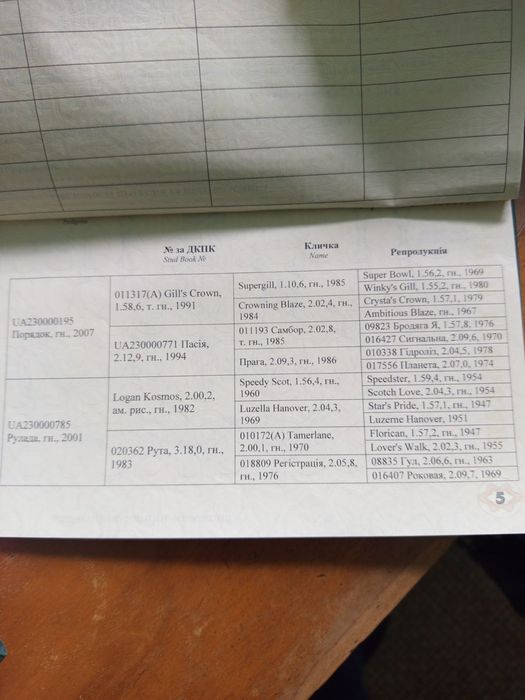 № за ДКПК
Stud Book №
Кличка
Name
Репродукція
UA230000195
Порядок, гн., 2007
011317(А) Gill's Crown,
1.58,6, т. гн., 1991
Supergill, 1.10,6, гн., 1985
Super Bowl, 1.56,2, гн., 1969
Winky's Gill, 1.55,2, гн., 1980
Crowning Blaze, 2.02,4, гн.,
1984
Crysta's Crown, 1.57,1, 1979
Ambitious Blaze, гн., 1967
UA230000771 Пасія,
2.12,9, гн., 1994
011193 Самбор, 2.02,8,
т. гн., 1985
09823 Бродяга Я, 1.57,8, 1976
016427 Сигнальна, 2.09,6, 1970
Прага, 2.09,3, гн., 1986
010338 Гідроліз, 2.04,5, 1978
017556 Планета, 2.07,0, 1974
UA230000785
Рулада, гн., 2001
Logan Kosmos, 2.00,2,
ам. рис., гн., 1982
Speedy Scot, 1.56,4, гн.,
1960
Speedster, 1.59,4, гн., 1954
Scotch Love, 2.04,3, гн., 1954
Luzella Hanover, 2.04,3,
1969
Star's Pride, 1.57,1, гн., 1947
Luzerne Hanover, 1951
020362 Рута, 3.18,0, гн.,
1983
010172(А) Tamerlane,
2.00,1, гн., 1970
Florican, 1.57,2, гн., 1947
Lover's Walk, 2.02,3, гн., 1955
018809 Регістрація, 2.05,8,
гн., 1976
08835 Гул, 2.06,6, гн., 1963
016407 Роковая, 2.09,7, 1969
5